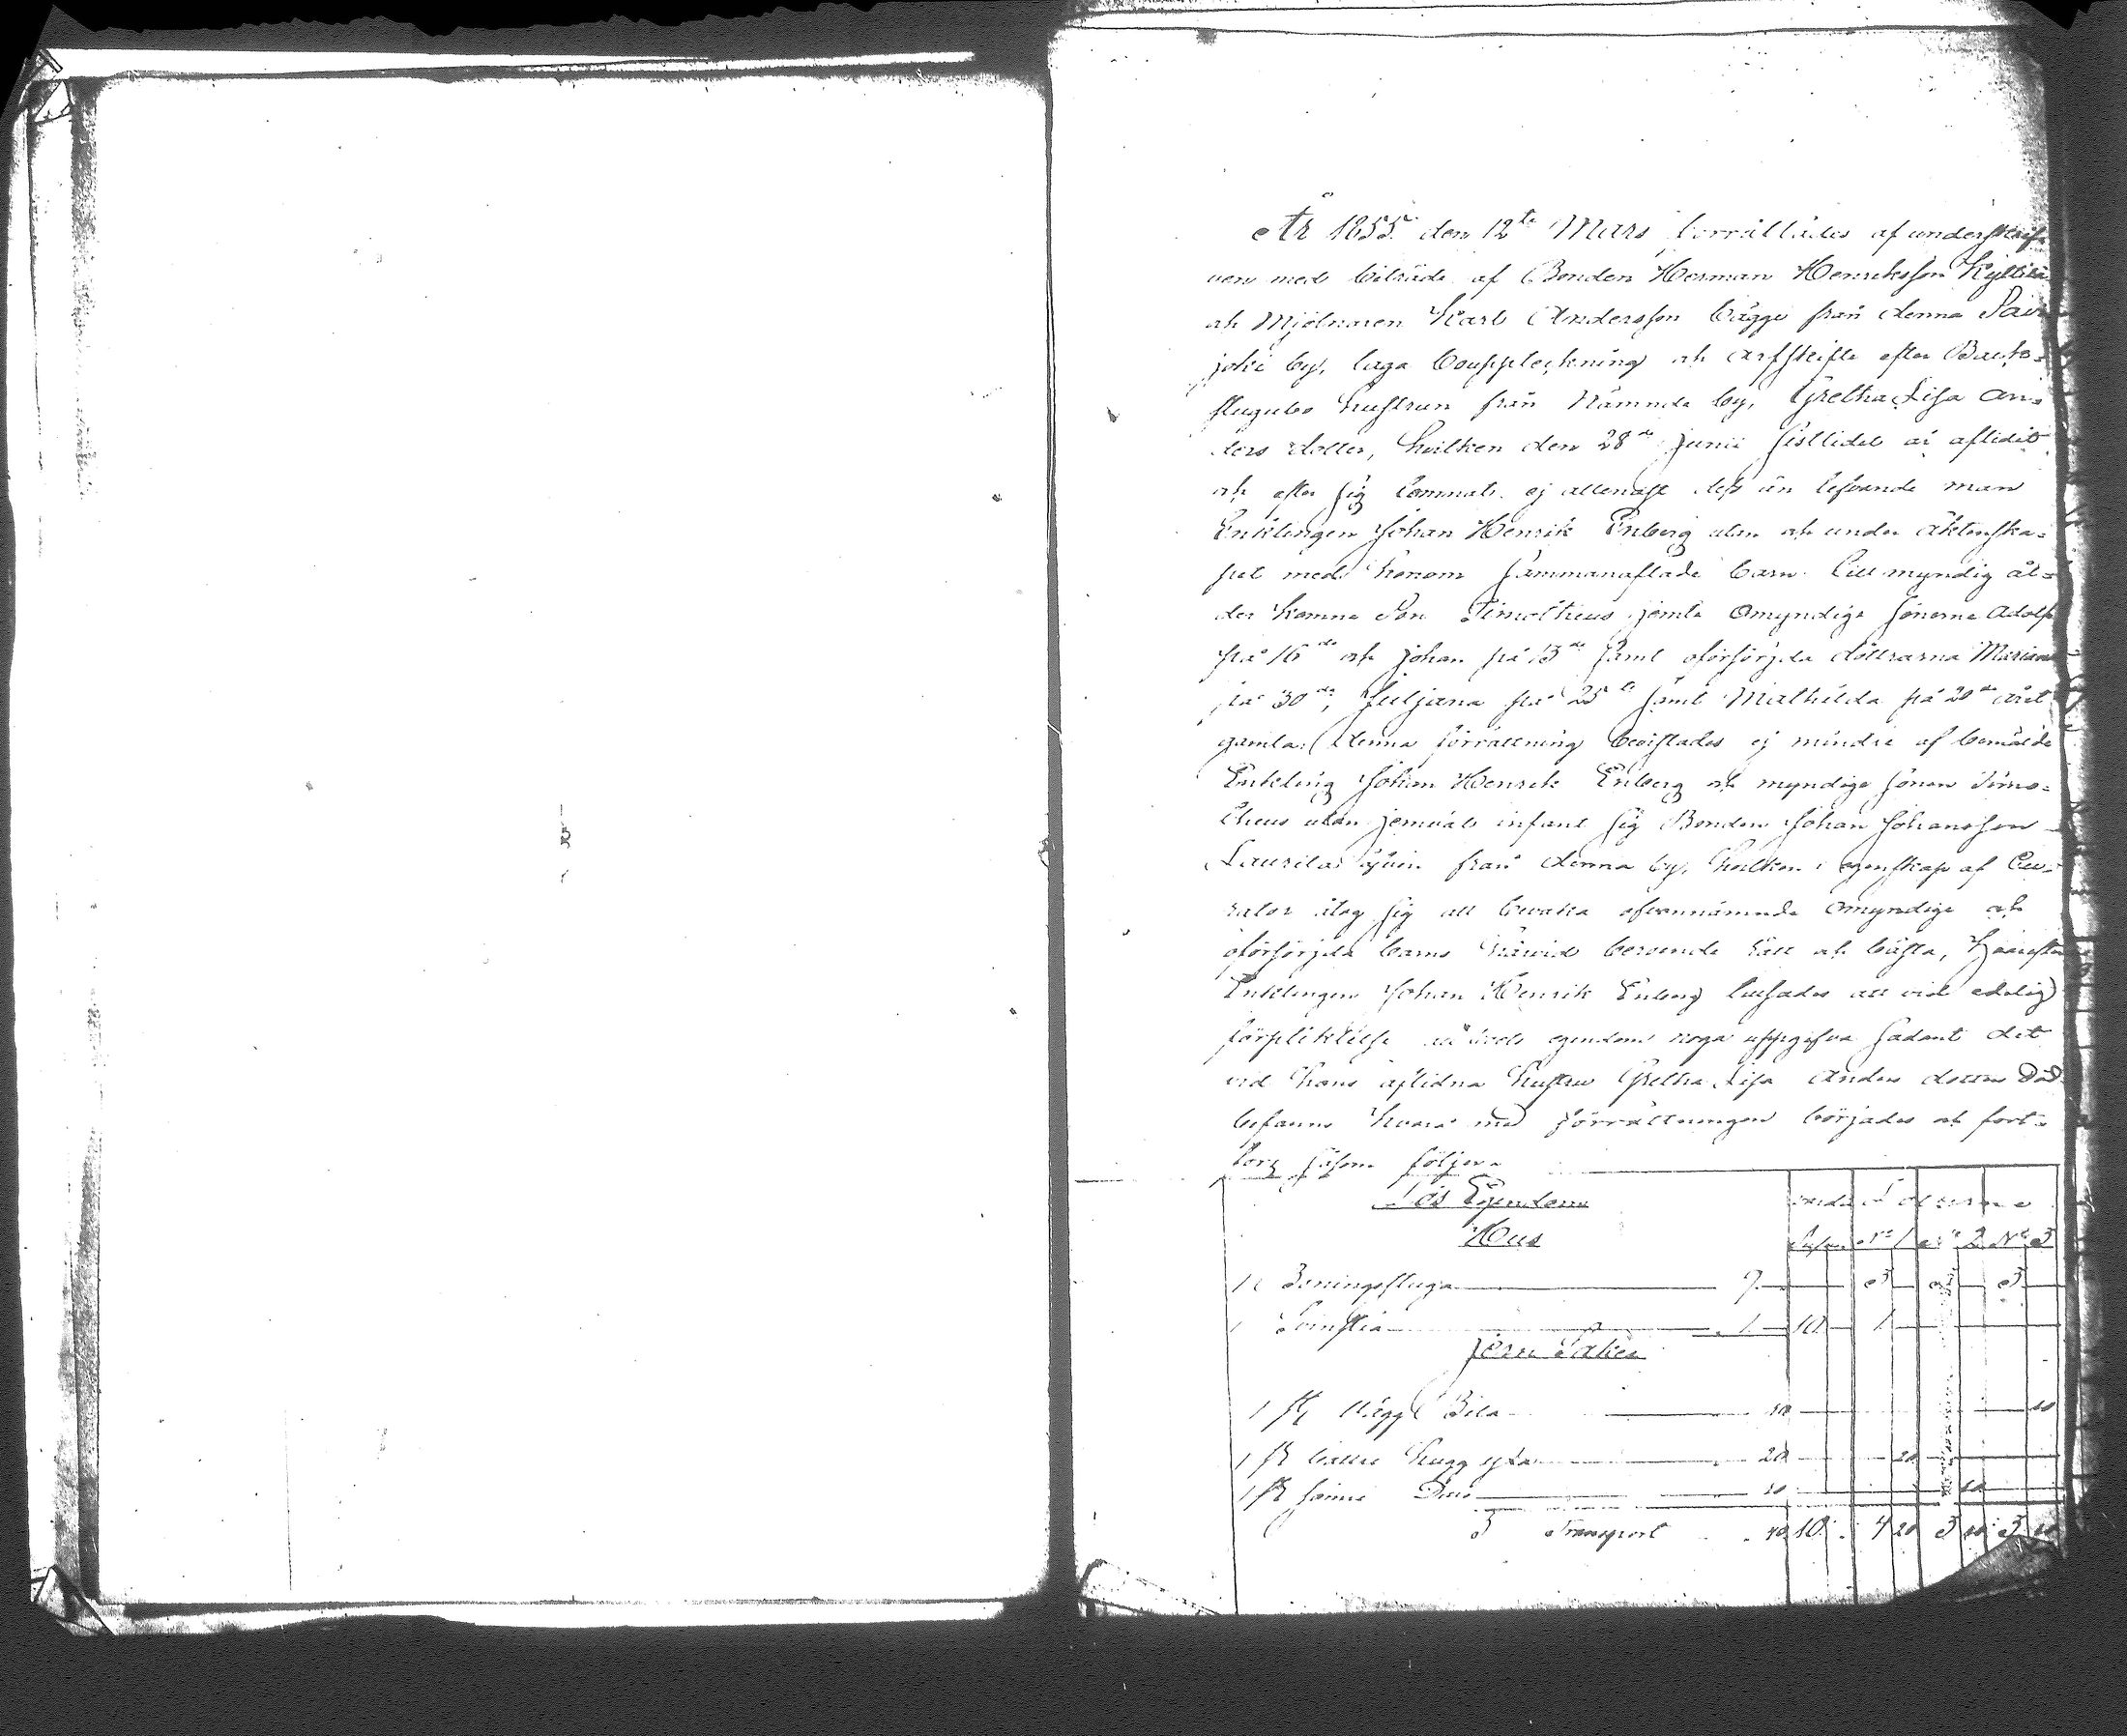 År 1855 den 12te Mars förrättades af underskrif-
ven med biträde af Bonden Herman Henriksson Kyllikä
och Mjölnaren Karl Andersson bägge från denna Savi
joki by, laga bouppteckning och arfskifte efter Backs-
stugubo hustrun från nämnde by, Gretha Lisa An-
ders dotter, hvilken den 28de Junii sistlidet år aflidit
och efter sig lemnat ej allenast dess än lefvande man
Enklingen Johan Henrik Enberg utan och under äktenska-
pet med honom sammanaflade barn till myndig ål-
der komne Son Timotheus jemte Omyndige Sönerne Adolf
på 16de och Johan på 13de samt oförsörjda döttrarna Mariana
på 30de, Juljana på 25te samt Mathilda på 20de året
gamla. Denna förrättning bevistades ej mindre af bemälde
Enkling Johan Henrik Enberg och myndige Sonen Timo-
theus utan jemväl infant sig Bonden Johan Johansson
Laurila från denna by, hvilken i egenskap af Cu-
rator åtog sig att bevaka ofvannämnde Omyndige och
oförsörjda barns härvid beroende rätt och bästa, Hvarefter
Enklingen Johan Henrik Enberg tillsades att vid edelig
förpliktelse egendom noga uppgifva sådant det
vid hans aflidna hustru Gretha Lisa Anders dotters Död
befanns hvar med förrättningen börjades och fort-
for såsom följer
Lös Egendom
Hus
N:o 1 N:o 2 N:o 3
1 Boningsstuga 9 3 3 3
1 Svinstia 1 10 1
Jern Saker
1 st Bila 10 10
1 st bättre hugg yxa 20 20
1 st sämre Dito 10 10
Transport 40 10 4 20 3 10 3 10